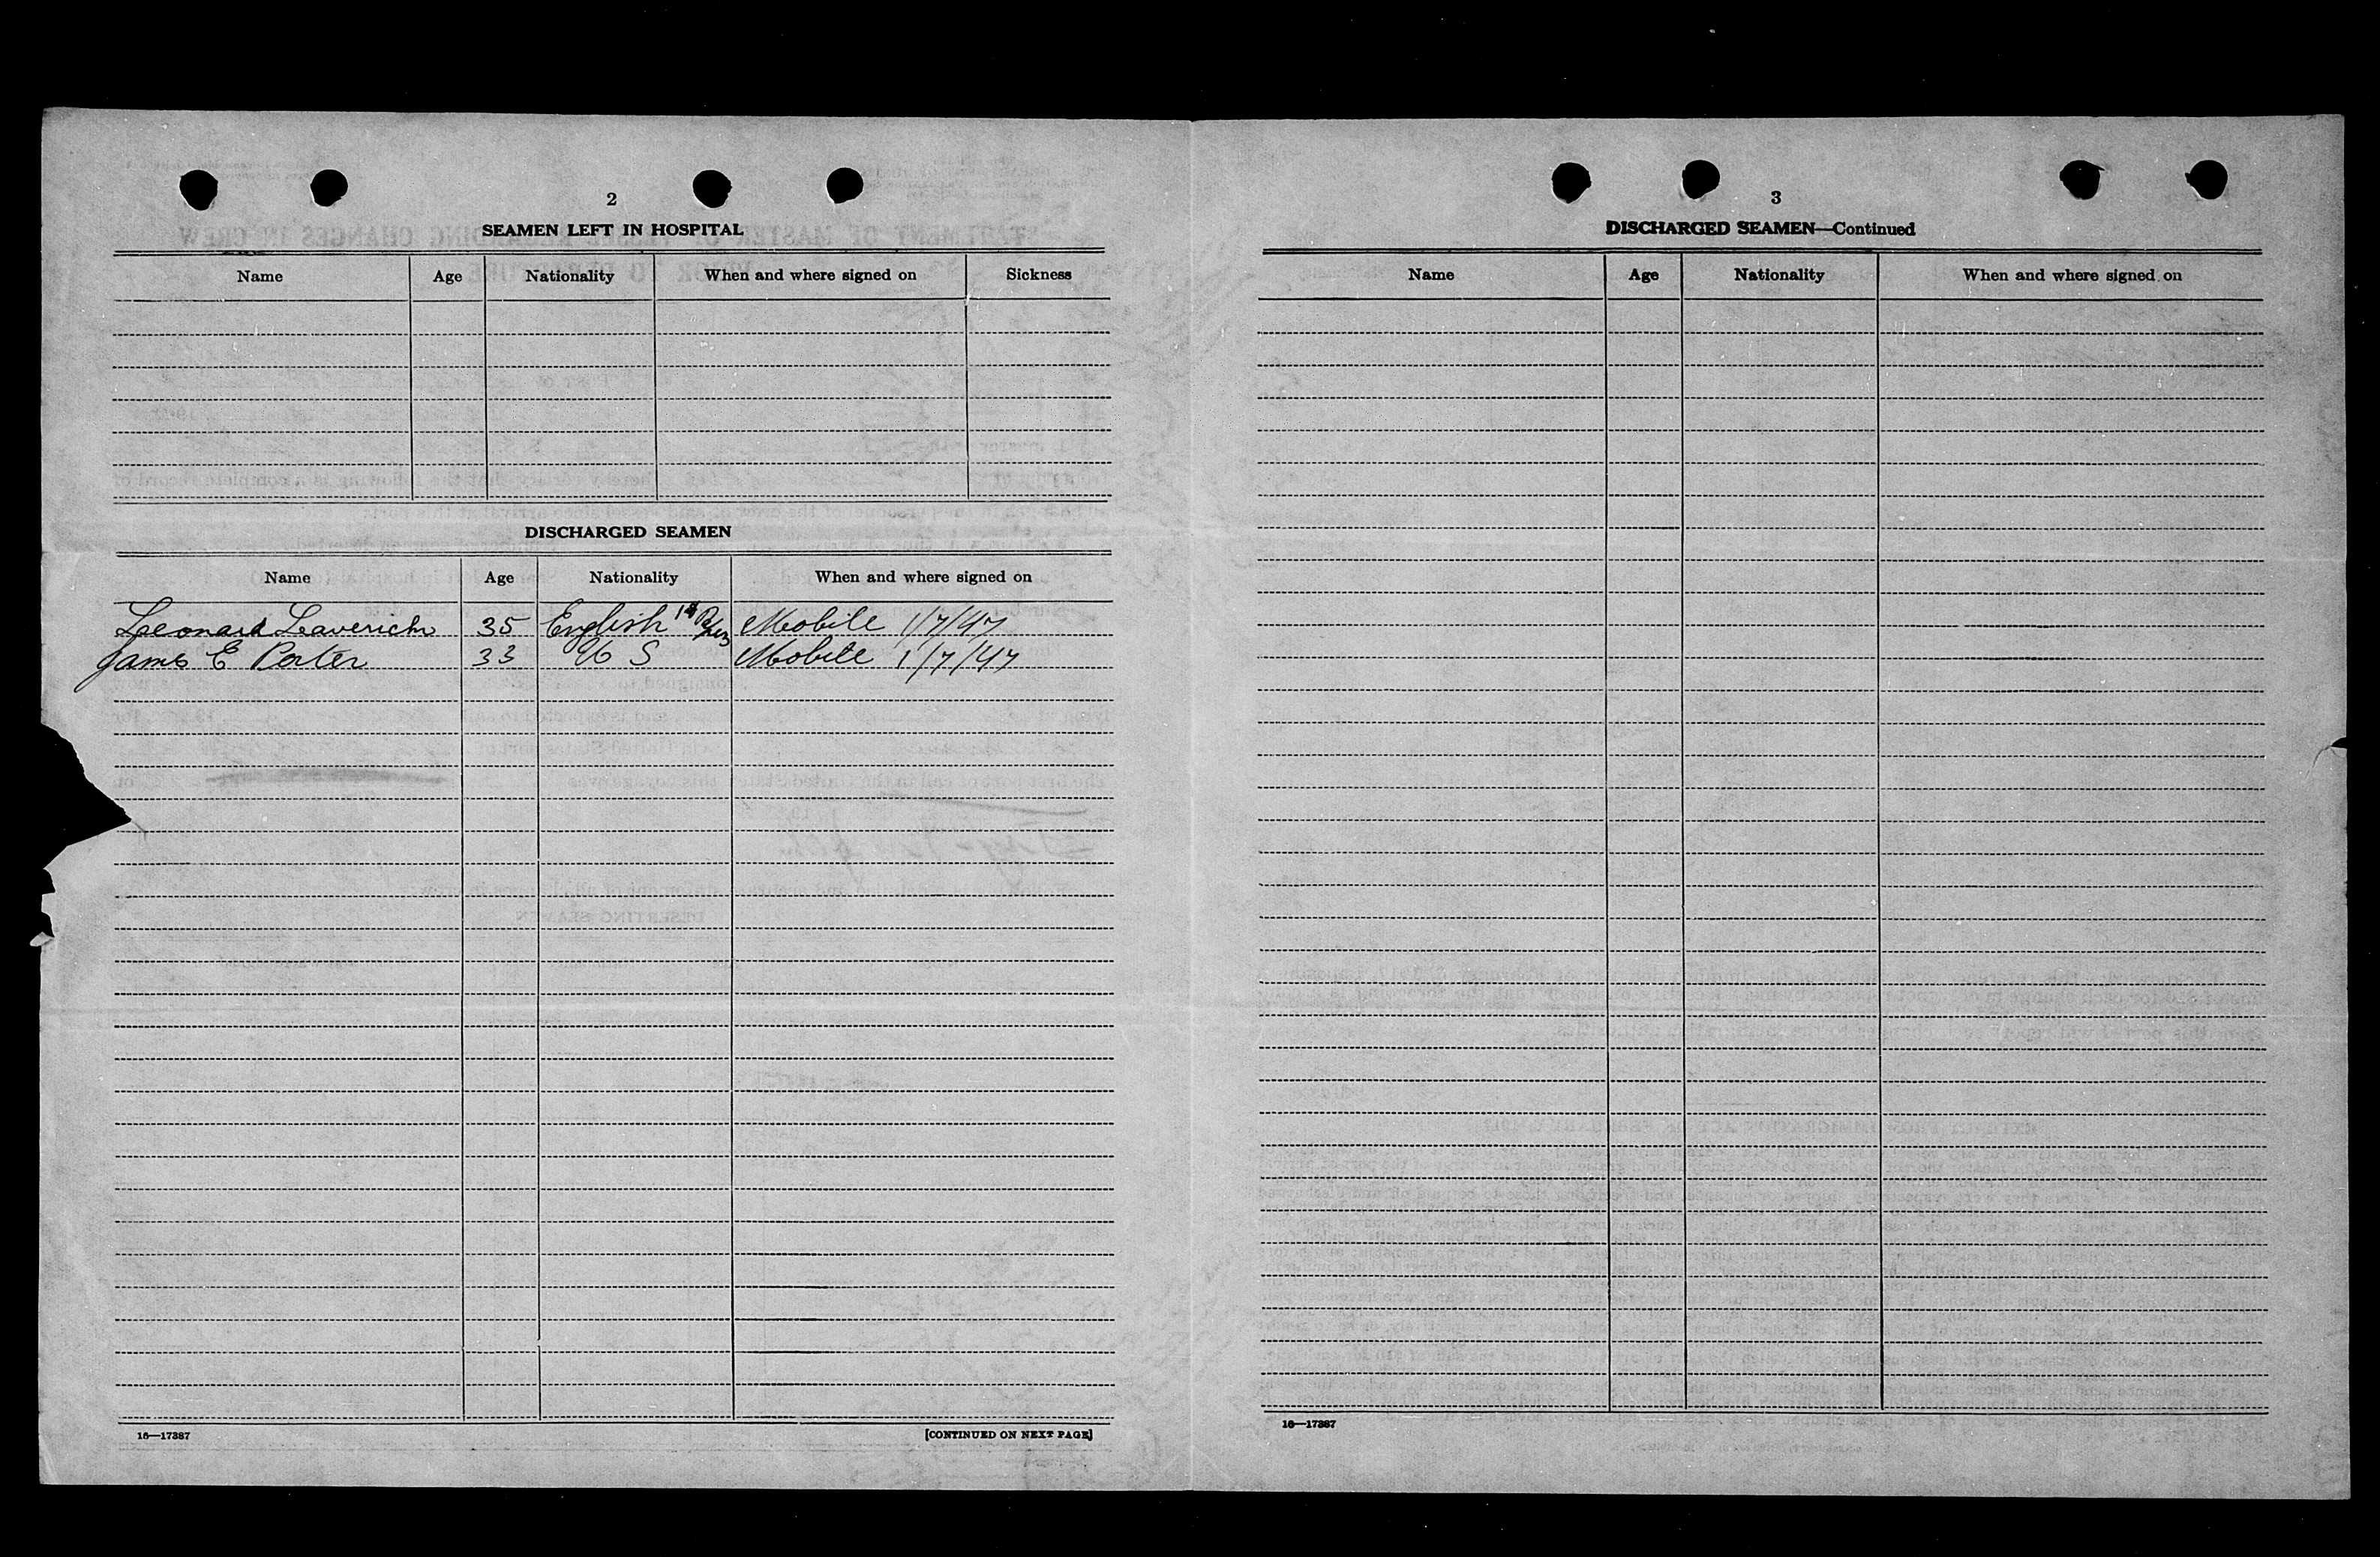 2
SEAMEN LEFT IN HOSPITAL
Name Age Nationality When and where signed on Sickness
DISCHARGED SEAMEN
Name Age Nationality When and where signed on
Leonard Laverick 35 English Mobile 1/7/47
James E Porter 33 U S Mobile 1/7/47
16—17387 [CONTINUED ON NEXT PAGE]
3
DISCHARGED SEAMEN—Continued
Name Age Nationality When and where signed on
16—17387